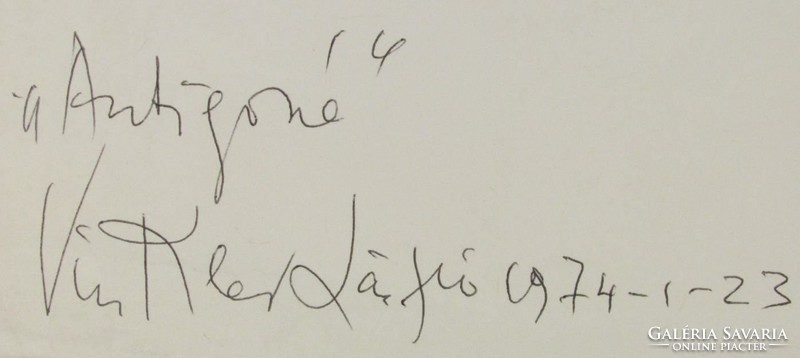 „Antigoné”
Vinkler László 1974-1-23
GALÉRIA SAVARIA
ONLINE PIACTÉR